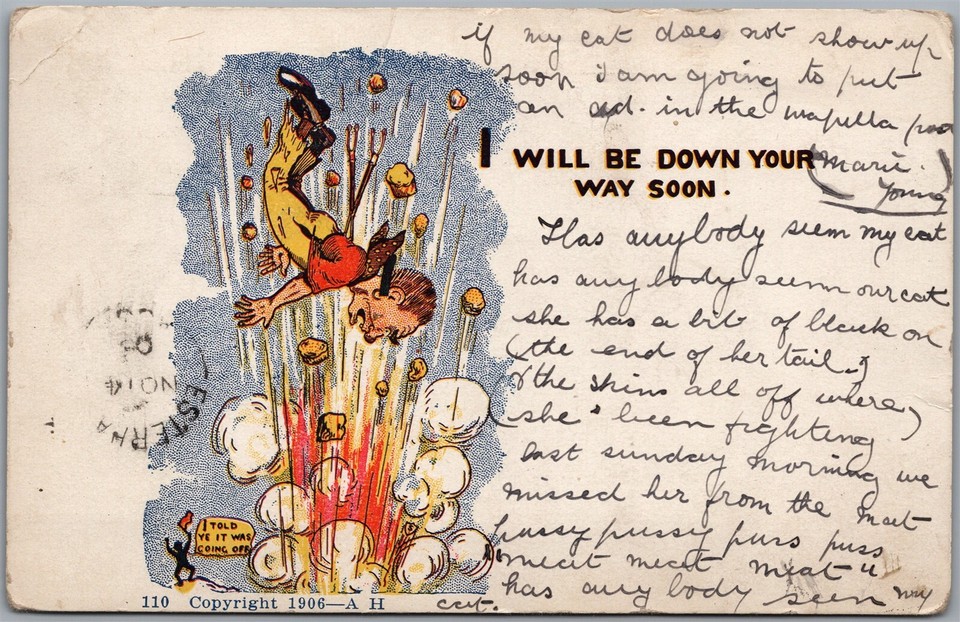 if my cat does not show up
soon i am going to put
an ad. in the wapella
(Marie.
Young)
I WILL BE DOWN YOUR
WAY SOON.
Has anybody seem my cat
has any body seemn our cat
she has a bit of black on
(the end of her tail.)
(& the skins all off where)
(she's been fighting
last sunday morning we
missed her from the mat
pussy pussy puss puss
"meat meat meat"
has any body seen my
cat.
I TOLD
YE IT WAS
GOING OFF
110 Copyright 1906—A H
ESTERHA
NO14